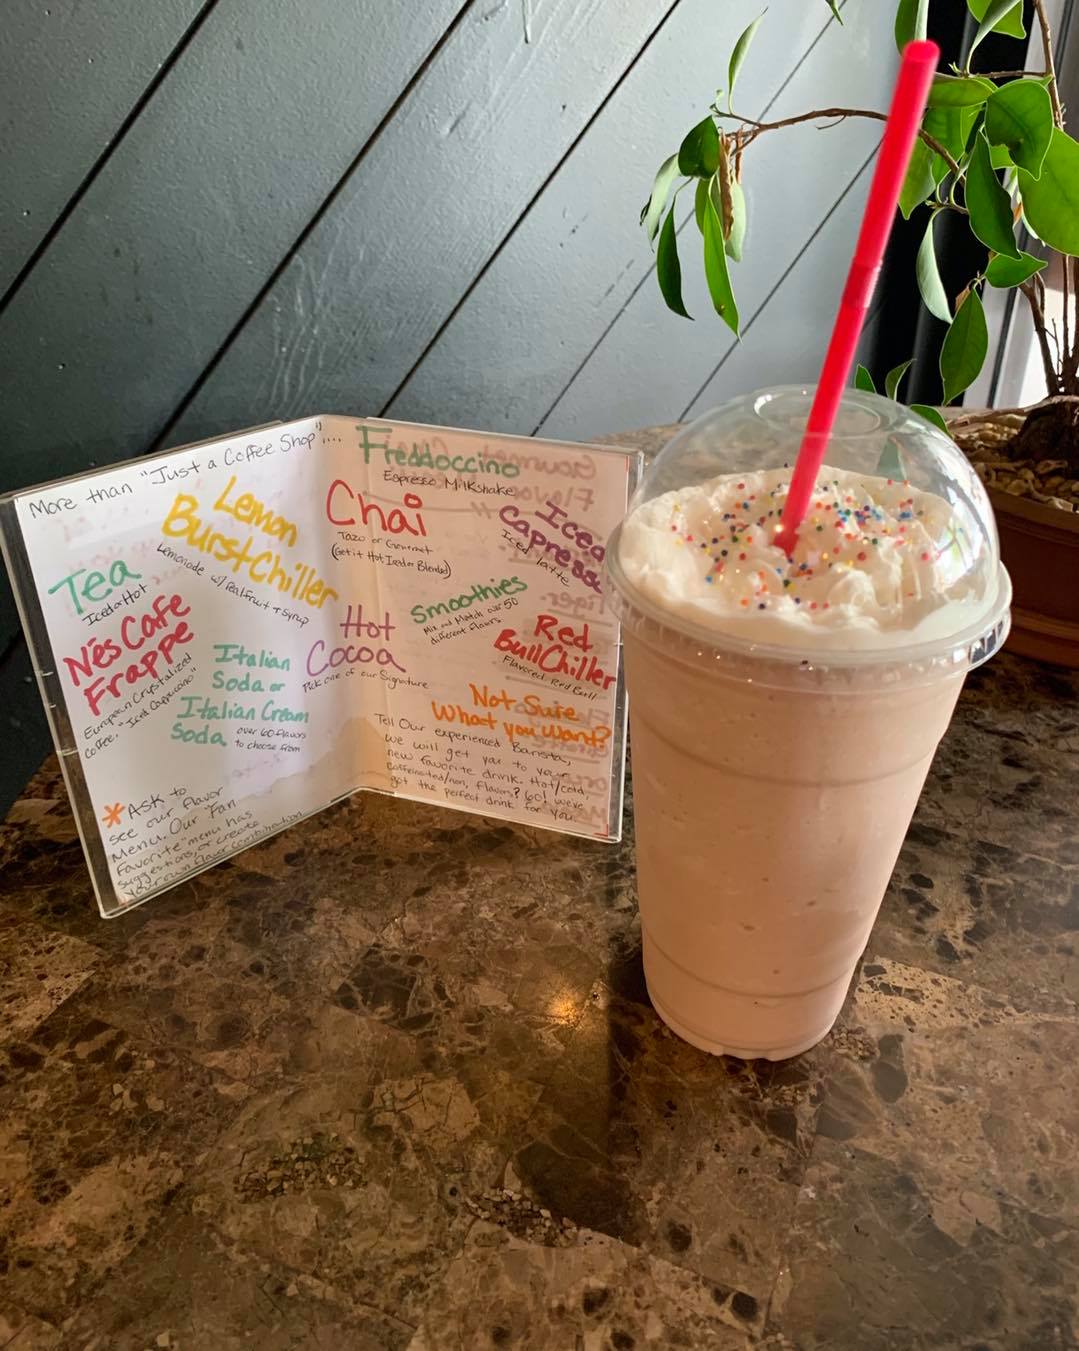 More than "Just a Coffee Shop"....
Lemon
Burst Chiller
Lemonade w/ Real Fruit + Syrup
Tea
Iced or Hot
Nés Cafe
Frappe
European Crystalized
Coffee. "Iced Cappuccino"
Italian
Soda or
Italian Cream
Soda
over 60 flavors
to choose from
*Ask to
see our flavor
Menu. Our "Fan
Favorite" menu has
suggestions, or create
your own flavor combination
Freddoccino
Espresso Milkshake
Chai
Tazo or Gourmet
(Get it Hot, Iced or Blended)
Iced
Iced latte
Smoothies
Mix and Match over 50
different flavors
Hot
Cocoa
Pick one of our Signature
Red
Bull Chiller
Flavored Red Bull
Not Sure
What you want?
Tell Our experienced Barista,
we will get you to your
new favorite drink. Hot/cold,
caffeinated/non, flavors? GO! we've
got the perfect drink for you.